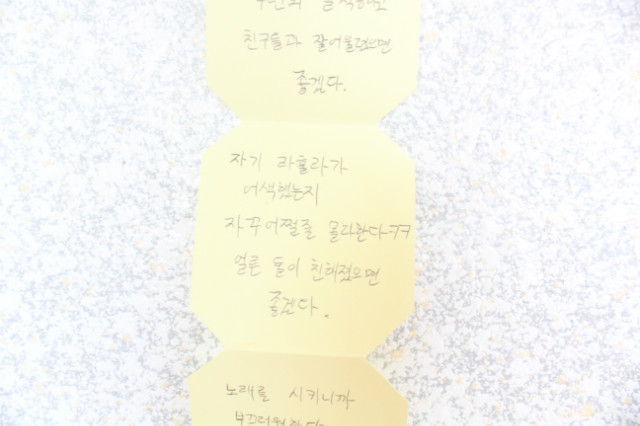 친구들과 잘어울렸으면
좋겠다.
자기 라훌라가
어색했는지
자꾸어쩔줄 몰라한다ㅋㅋ
얼른 둘이 친해졌으면
좋겠다.
노래를 시키니까